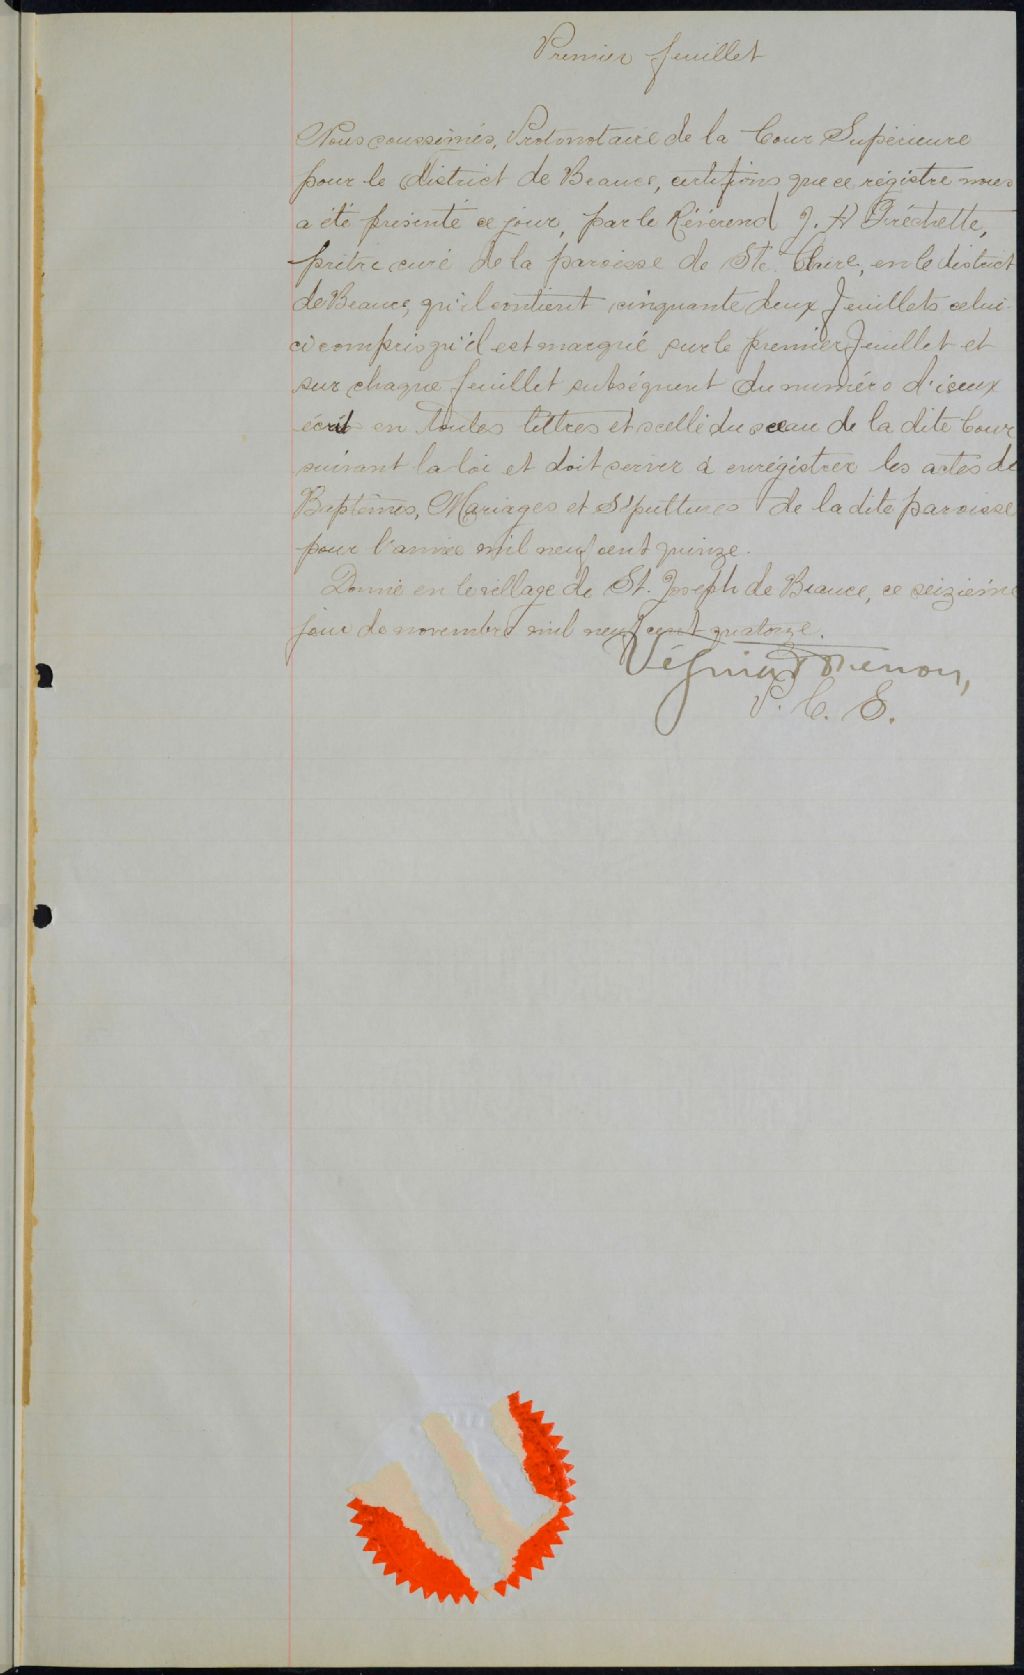 Premier feuillet
Nous soussignés, Protonotaire de la Cour Supérieure
pour le district de Beauce, certifions que ce régistre nous
a été présenté ce jour, par le Révérend J. A Fréchette,
prêtre curé de la paroisse de Ste. Claire, en le district
de Beauce, qu'il contient cinquante deux feuillets celui-
ci compris qu'il est marqué sur le premier feuillet et
sur chaque feuillet subséquent du numéro d'iceux
écrit en toutes lettres et scellé du sceau de la dite Cour
suivant la loi et doit servir à enrégistrer les actes de
Baptêmes, Mariages et Sépultures de la dite paroisse
pour l'année mil neuf cent quinze.
Donné en le village de St. Joseph de Beauce, ce seizième
jour de novembre mil neuf cent quatorze.
P. C. S.